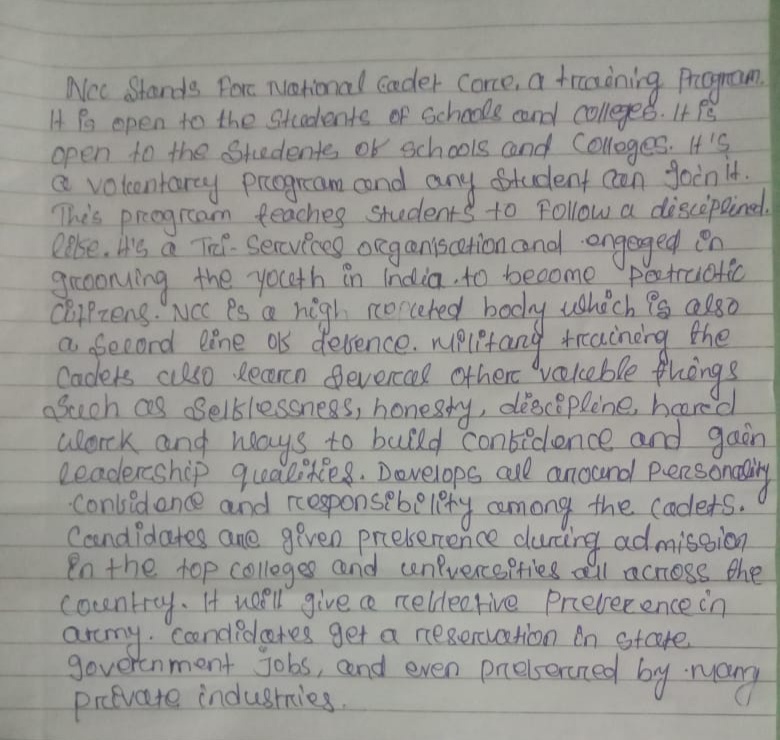 Ncc Stands For National Cadet Corce, a training Program.
It is open to the Students of Schools and colleges. It is
open to the Students of schools and Colleges. It's
a volentarcy program and any Student can Join it.
This program teaches students to Follow a disciplined.
life. It's a Tri-Services organisation and engaged in
grooming the youth in India. to become Patriotic
Citizens. NCC is a high reputed body which is also
a Second line of defence. Military training the
Cadets also learn Several other valuble things
Such as Selflessness, honesty, discipline, hard
work and ways to build confidence and gain
leadership qualities. Develops all around Personality
confidence and responsibility among the cadets.
Candidates are given preference during admission
in the top colleges and universities all across the
country. It will give a Preference in
army. Candidates get a reservation in state
government jobs, and even preferred by many
private industries.